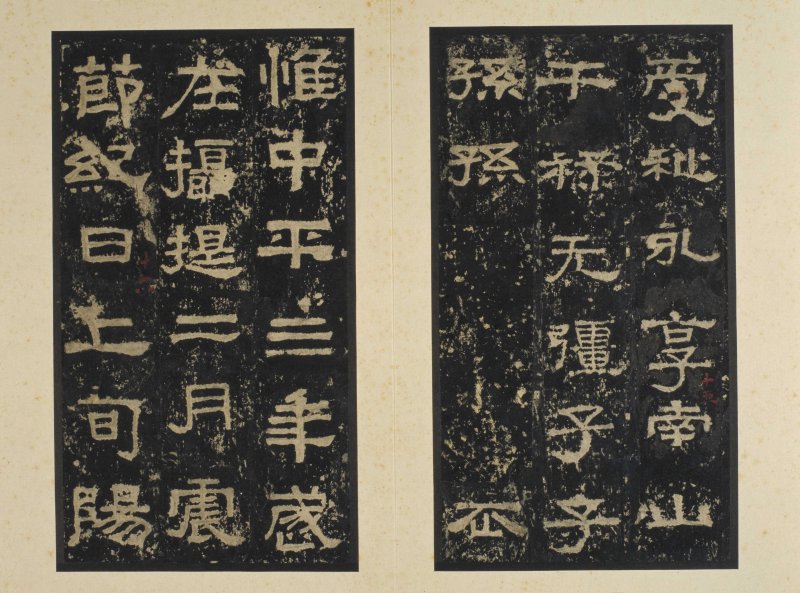 受祉永享南山
干祿无彊子子
孫孫
惟中平三年歲
在攝提二月震
節紀日上旬陽